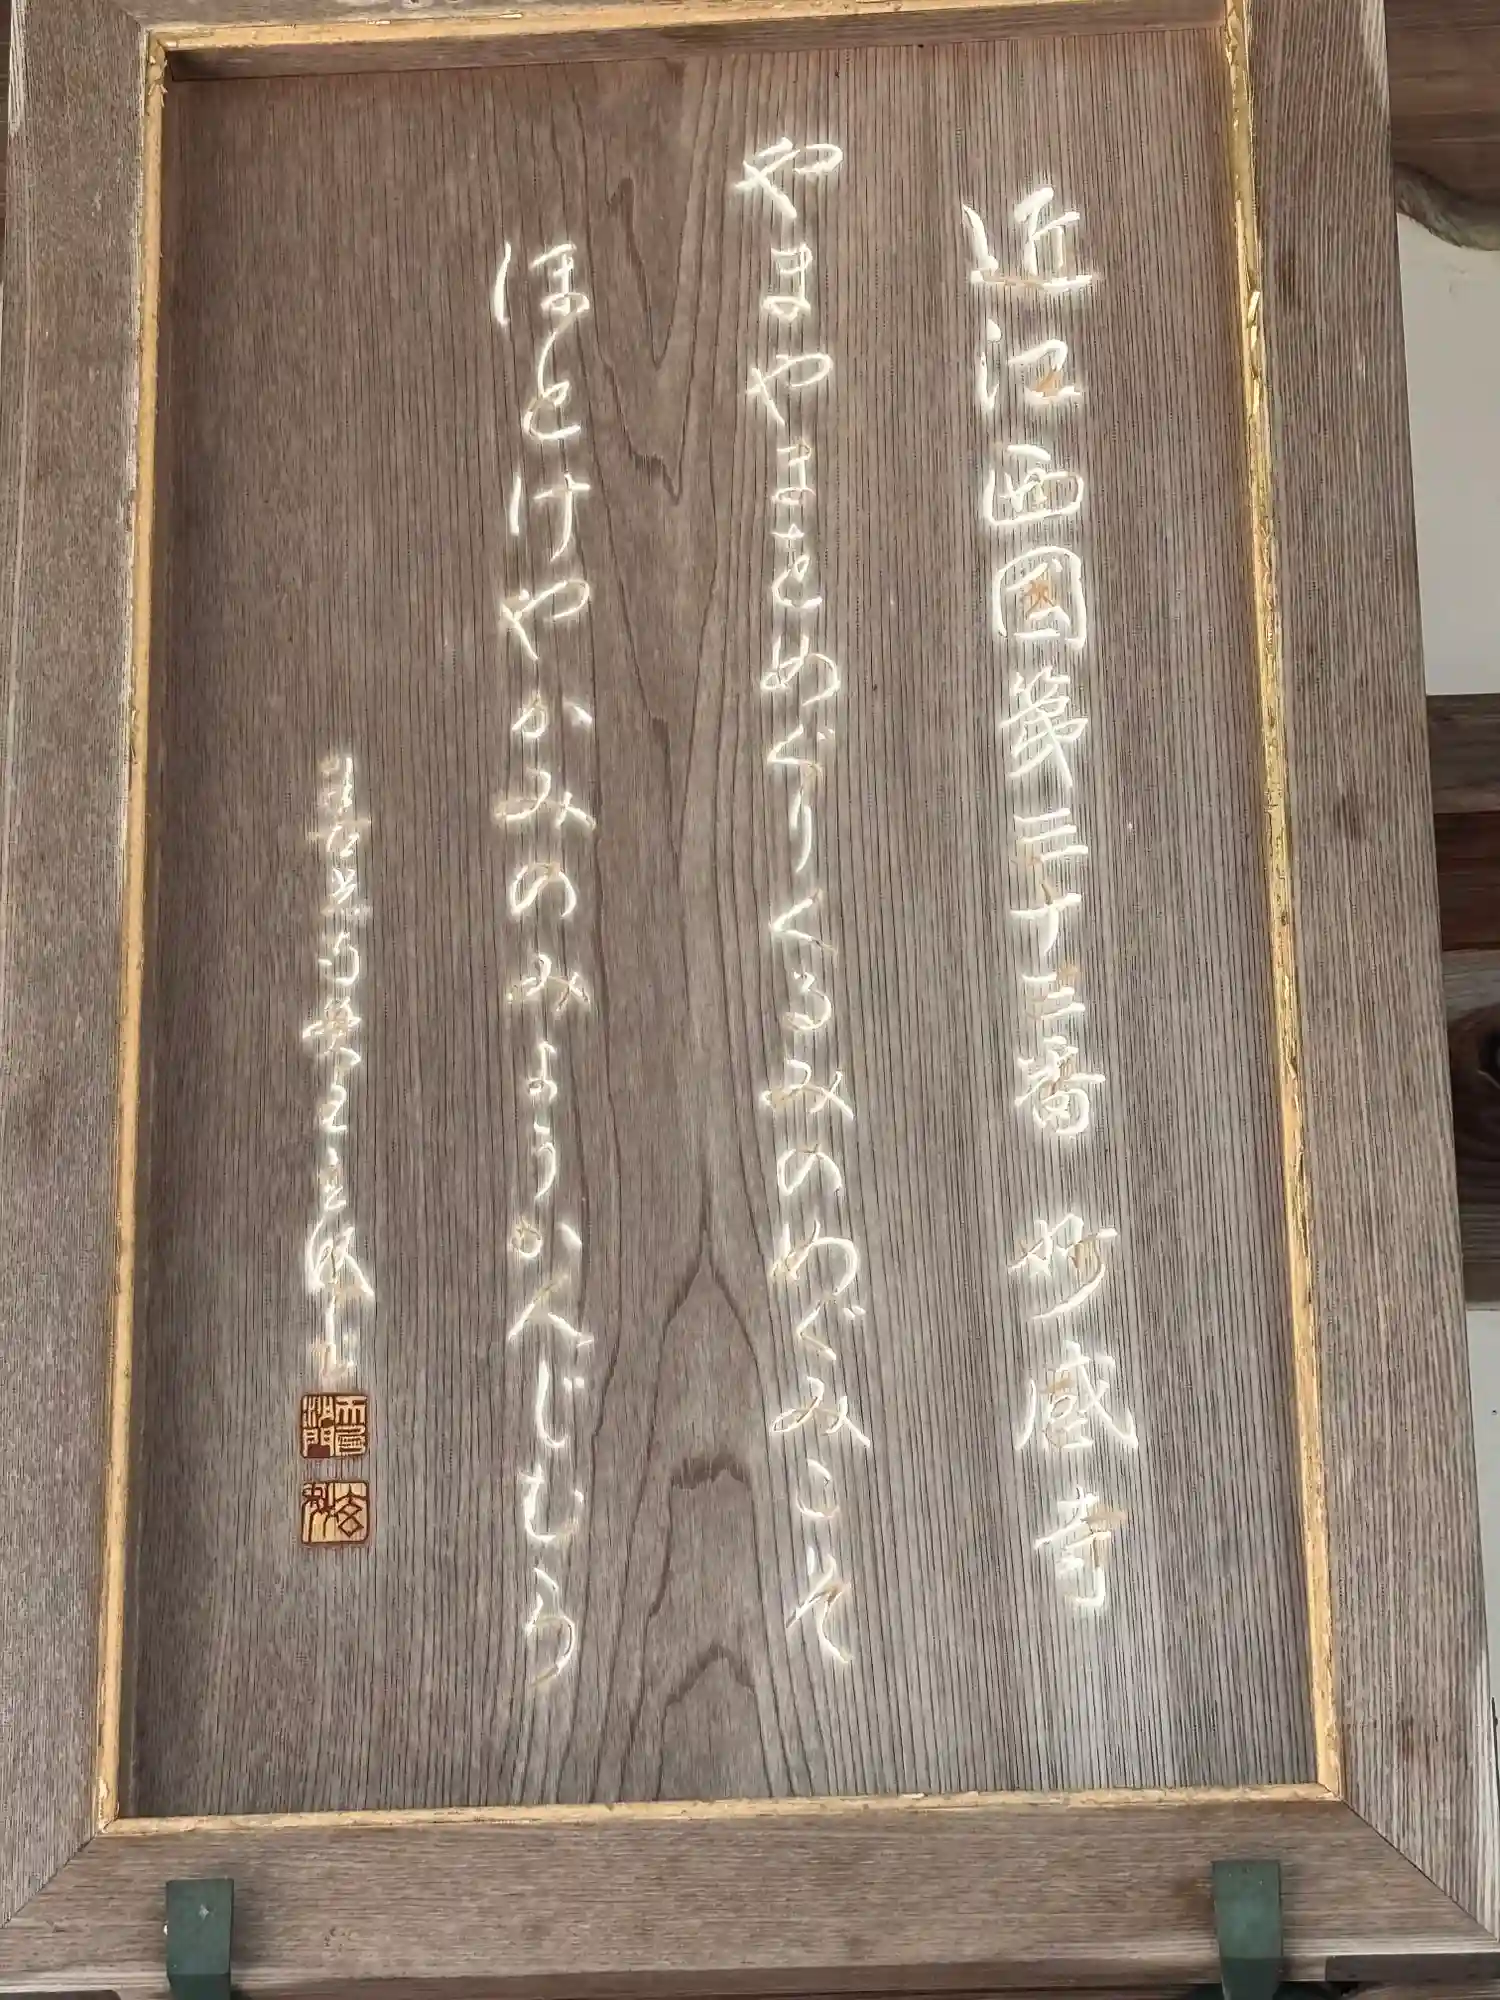 近江西國第三十三番 妙感寺
やまやまをめぐりくるみのめぐみこそ
ほとけやかみのみょうかんじむら
沙門